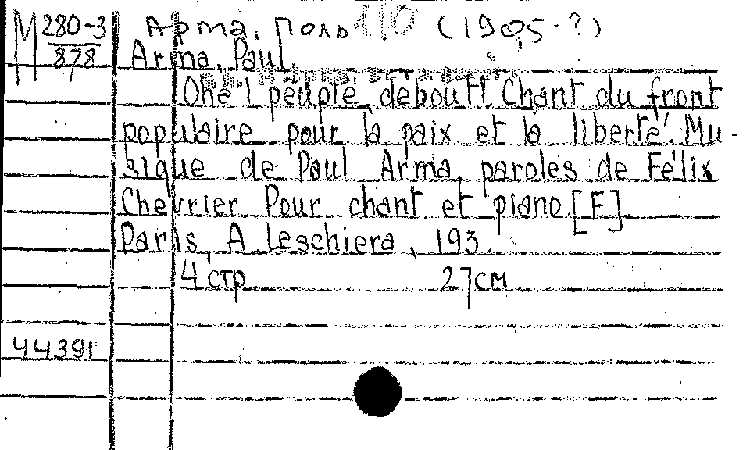 М 280-3/878 Арма, Поль (1905-?)
Arma, Paul.
Ohé! peuple debout! Chant du front
populaire pour la paix et la liberté. Mu-
sique de Paul Arma, paroles de Félix
Chevrier Pour chant et piano [F].
Paris, A Leschiera, 193.
4 стр 27 см
44391